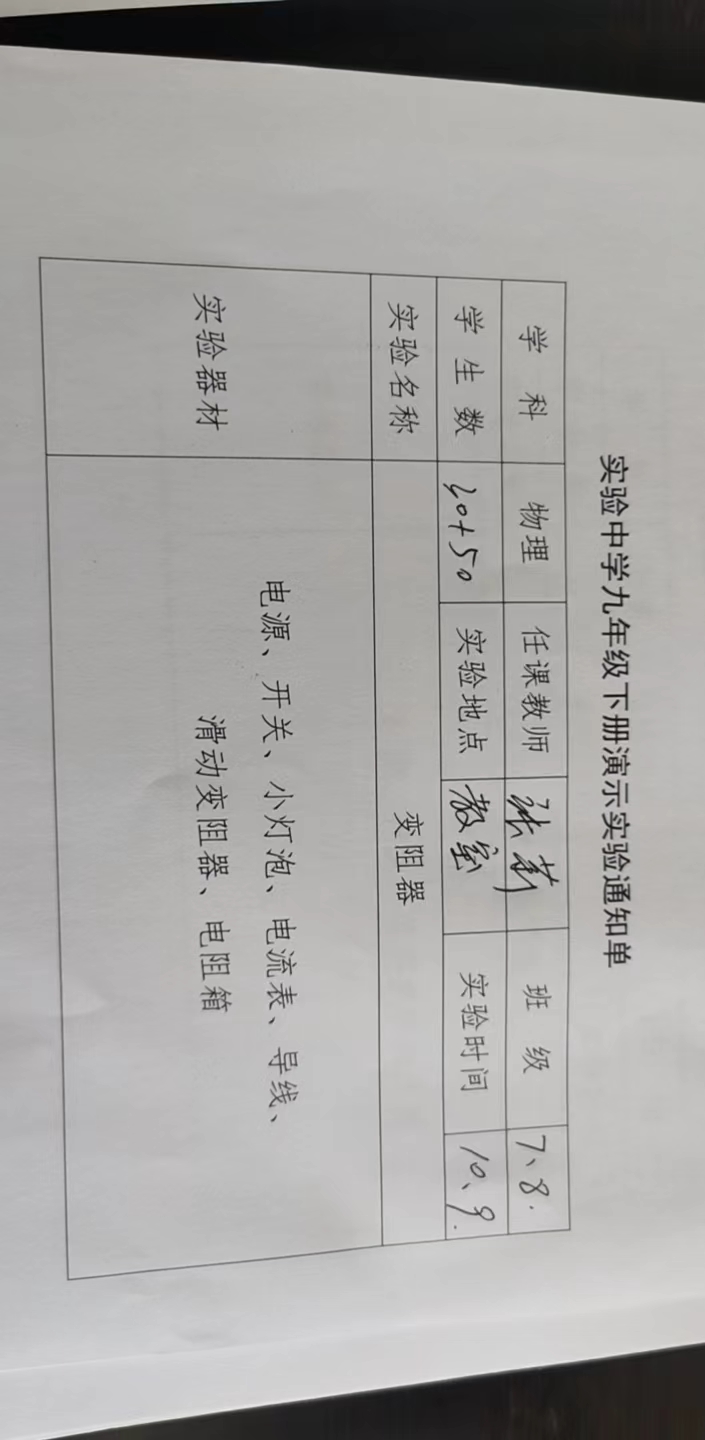 实验中学九年级下册演示实验通知单
学 科 物理 任课教师 张莉 班 级 7、8.
学生数 50+50 实验地点 教室 实验时间 10、9.
实验名称 变阻器
实验器材 电源、开关、小灯泡、电流表、导线、
滑动变阻器、电阻箱